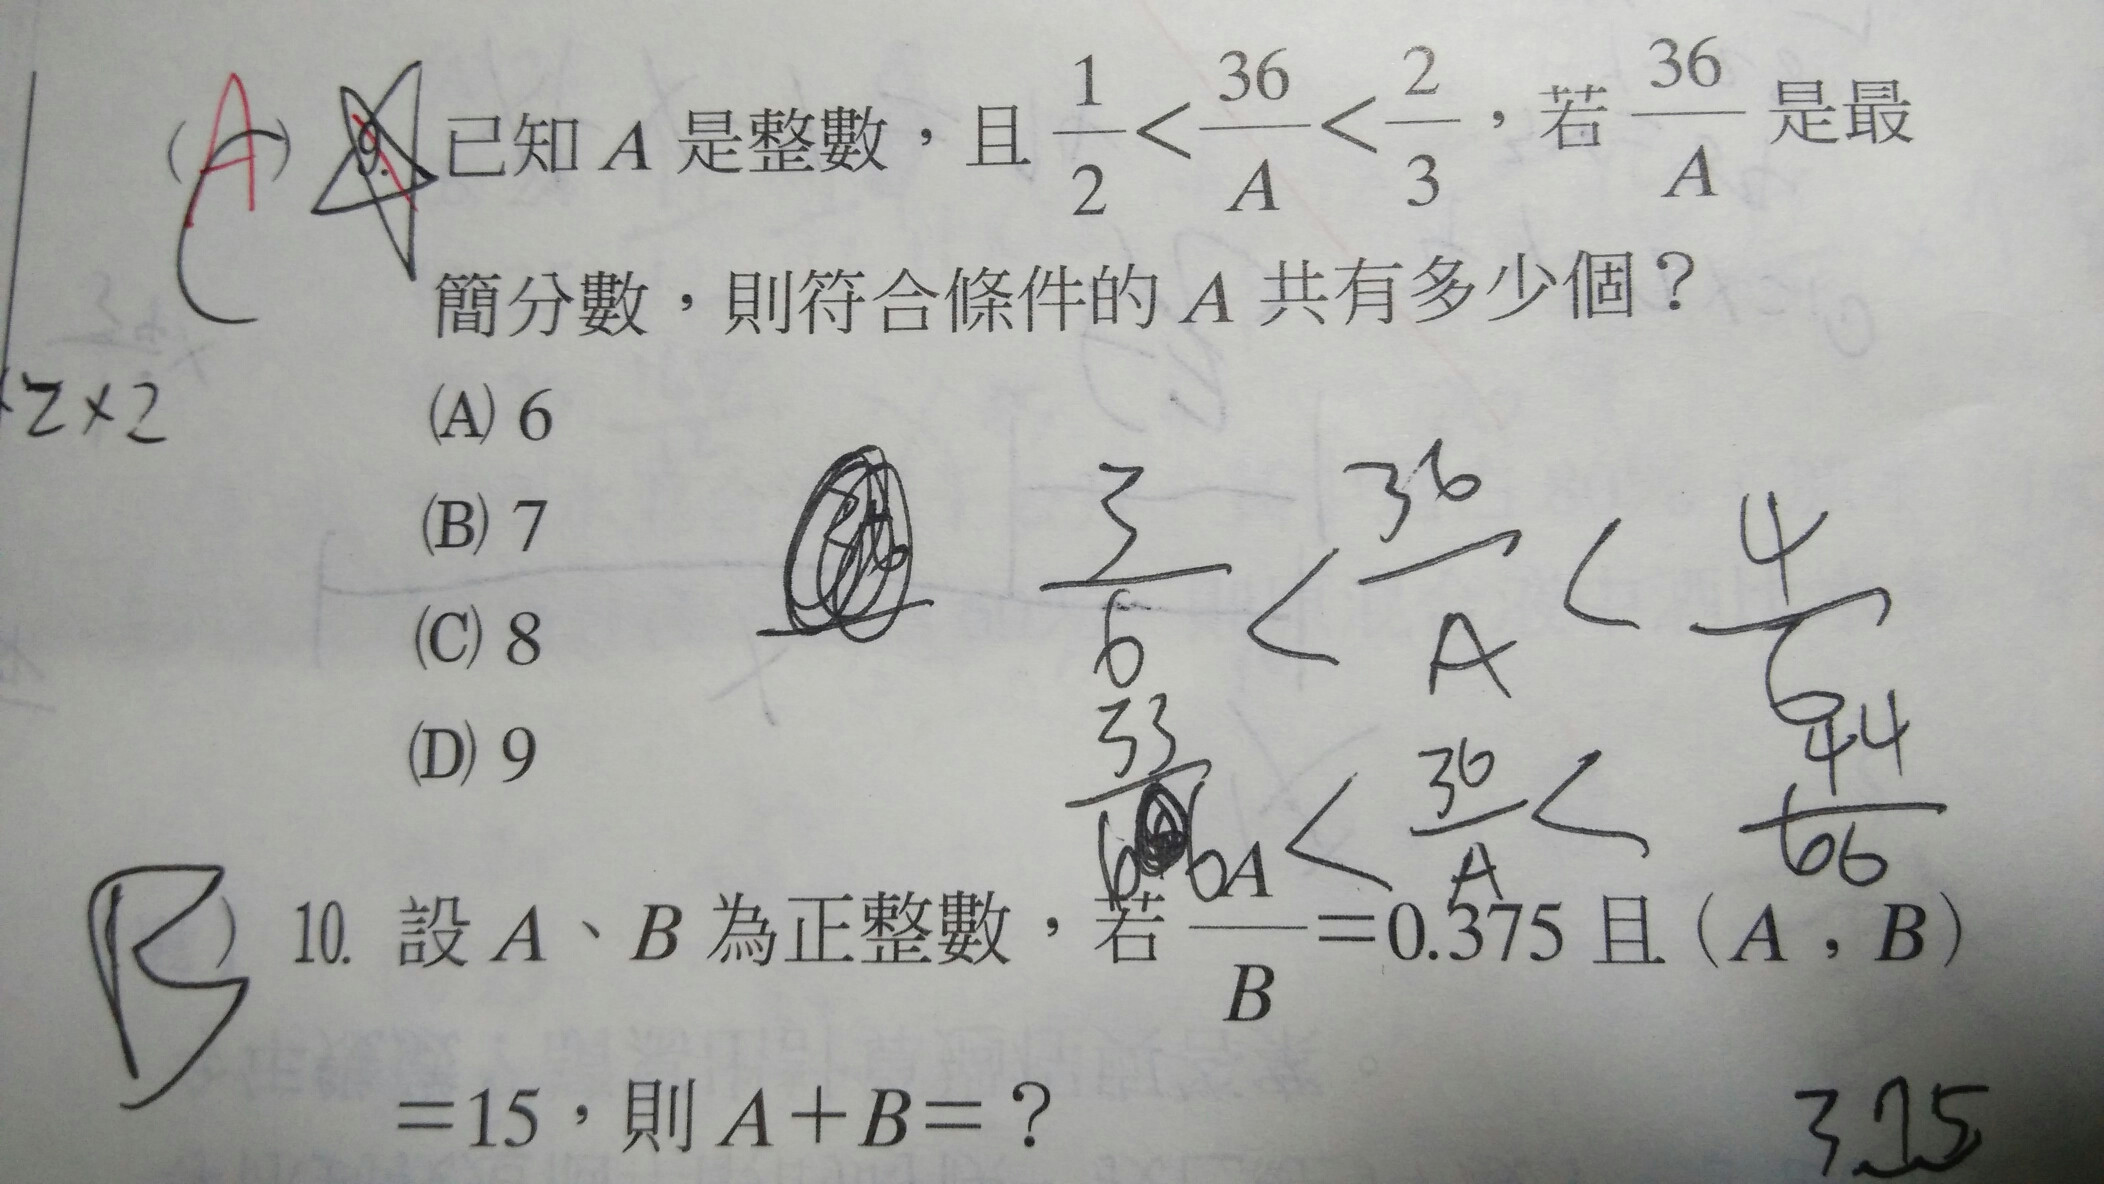 (A) 9. 已知 A 是整數，且 1/2 < 36/A < 2/3，若 36/A 是最
簡分數，則符合條件的 A 共有多少個？
(A) 6
(B) 7
(C) 8
(D) 9
z×2
3/6 < 36/A < 4/6
33/66 < 36/A < 44/66
B ) 10. 設 A、B 為正整數，若 A/B ＝0.375 且 (A，B)
＝15，則 A＋B＝？
375